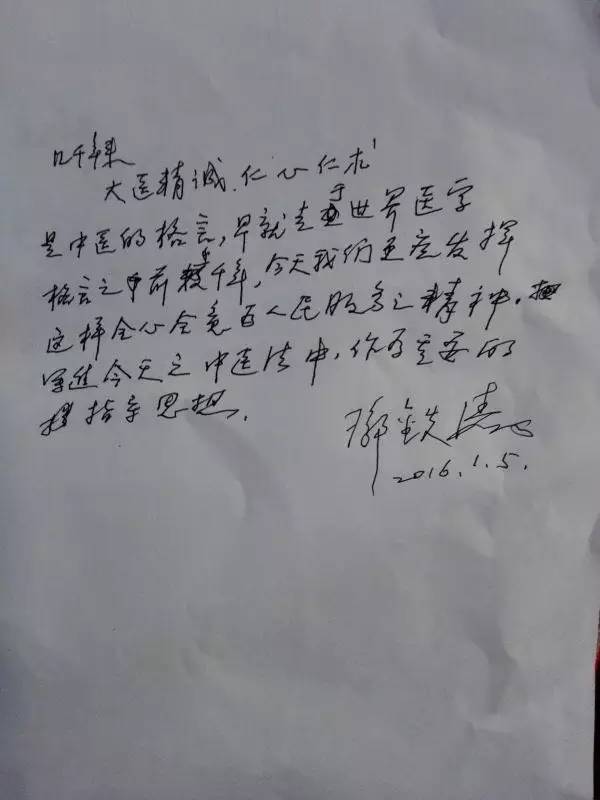 几千年来
大医精诚、仁心仁术
是中医的格言，早就走于世界医学
格言之前数千年，今天我们更应发挥
这样全心全意为人民服务之精神。
写进今天之中医法中，作为重要的
指导思想。
邓铁涛
2016.1.5.